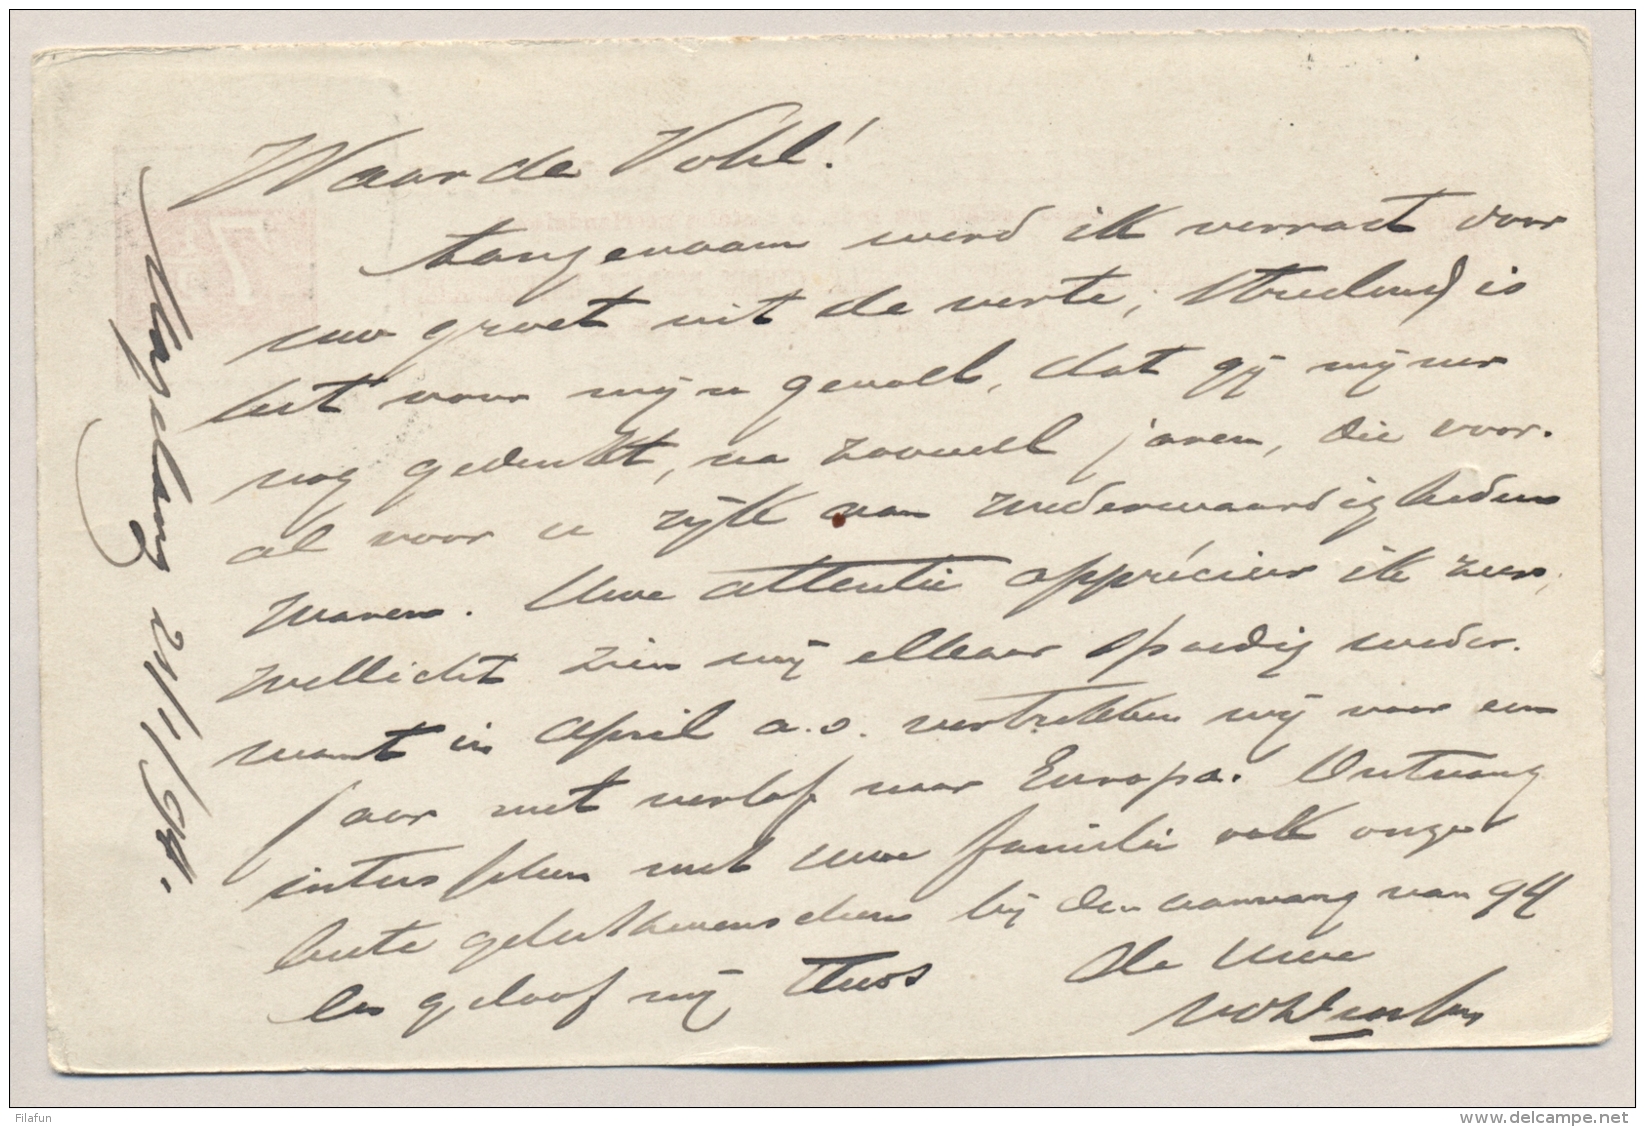 Magelang 21/1/94.
Waarde Vohl!
Aangenaam werd ik verrast door
uw groet uit de verte; Streelend is
het voor mijn gevoel, dat gij mijner
nog gedenkt, na zooveel jaren, die voor-
al voor u rijk van wederwaardigheden
waren. Uwe attentie apprécieer ik zeer,
wellicht zien wij elkaar spoedig weder.
want in April a.s. vertrekken wij voor een
jaar met verlof naar Europa. Ontvang
intusschen met uwe familie ook onze
beste gelukwenschen bij den aanvang van 94
en geloof mij steeds de Uwe
Filafun
www.delcampe.net